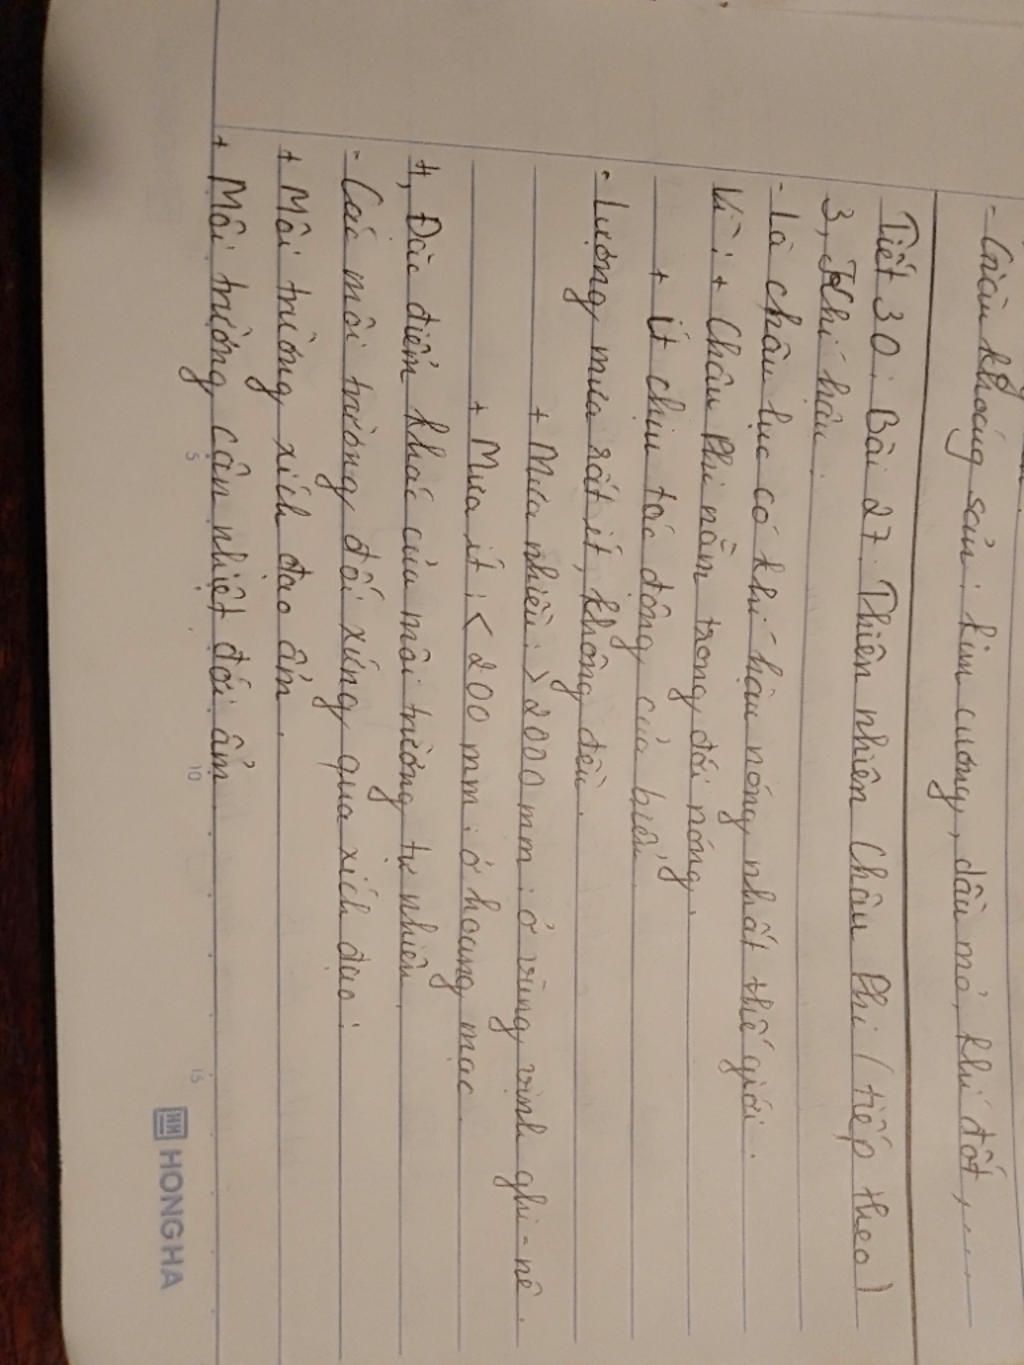 - Giàu khoáng sản: kim cương, dầu mỏ, khí đốt, ...
Tiết 30: Bài 27. Thiên nhiên Châu Phi (tiếp theo)
3, Khí hậu.
- Là châu lục có khí hậu nóng nhất thế giới.
Vì: + Châu Phi nằm trong đới nóng.
+ Ít chịu tác động của biển.
- Lượng mưa rất ít, không đều.
+ Mưa nhiều: > 2000 mm: ở vùng vịnh ghi-nê.
+ Mưa ít: < 200 mm: ở hoang mạc.
4, Đặc điểm khác của môi trường tự nhiên.
- Các môi trường đối xứng qua xích đạo:
+ Môi trường xích đạo ẩm.
+ Môi trường cận nhiệt đới ẩm.
5 10 15
HH HONGHA